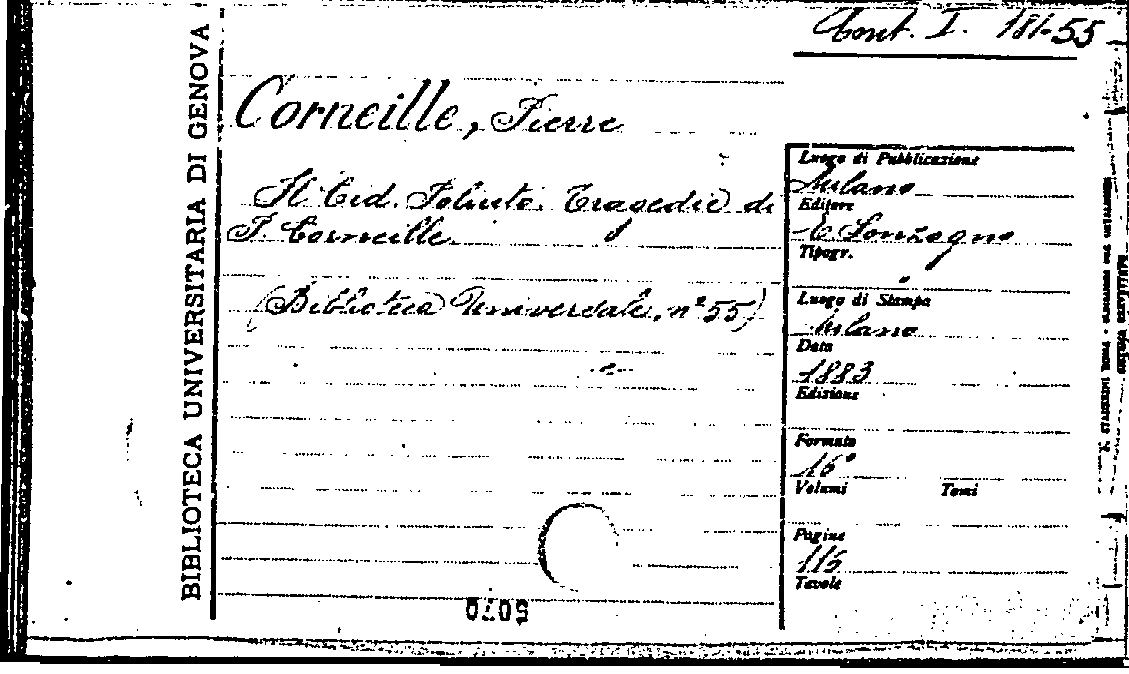 Cont. I. 181-55
BIBLIOTECA UNIVERSITARIA DI GENOVA
Corneille, Pierre
Il Cid. Poliuto. Tragedie di
P. Corneille.
(Biblioteca Universale, n° 55)
Luogo di Pubblicazione
Milano
Editore
E. Sonzogno
Tipogr.
"
Luogo di Stampa
Milano
Data
1883
Edizione
Formato
16°
Volumi Tomi
Pagine
115
Tavole